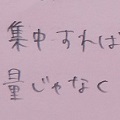 集中すれば
量じゃなく